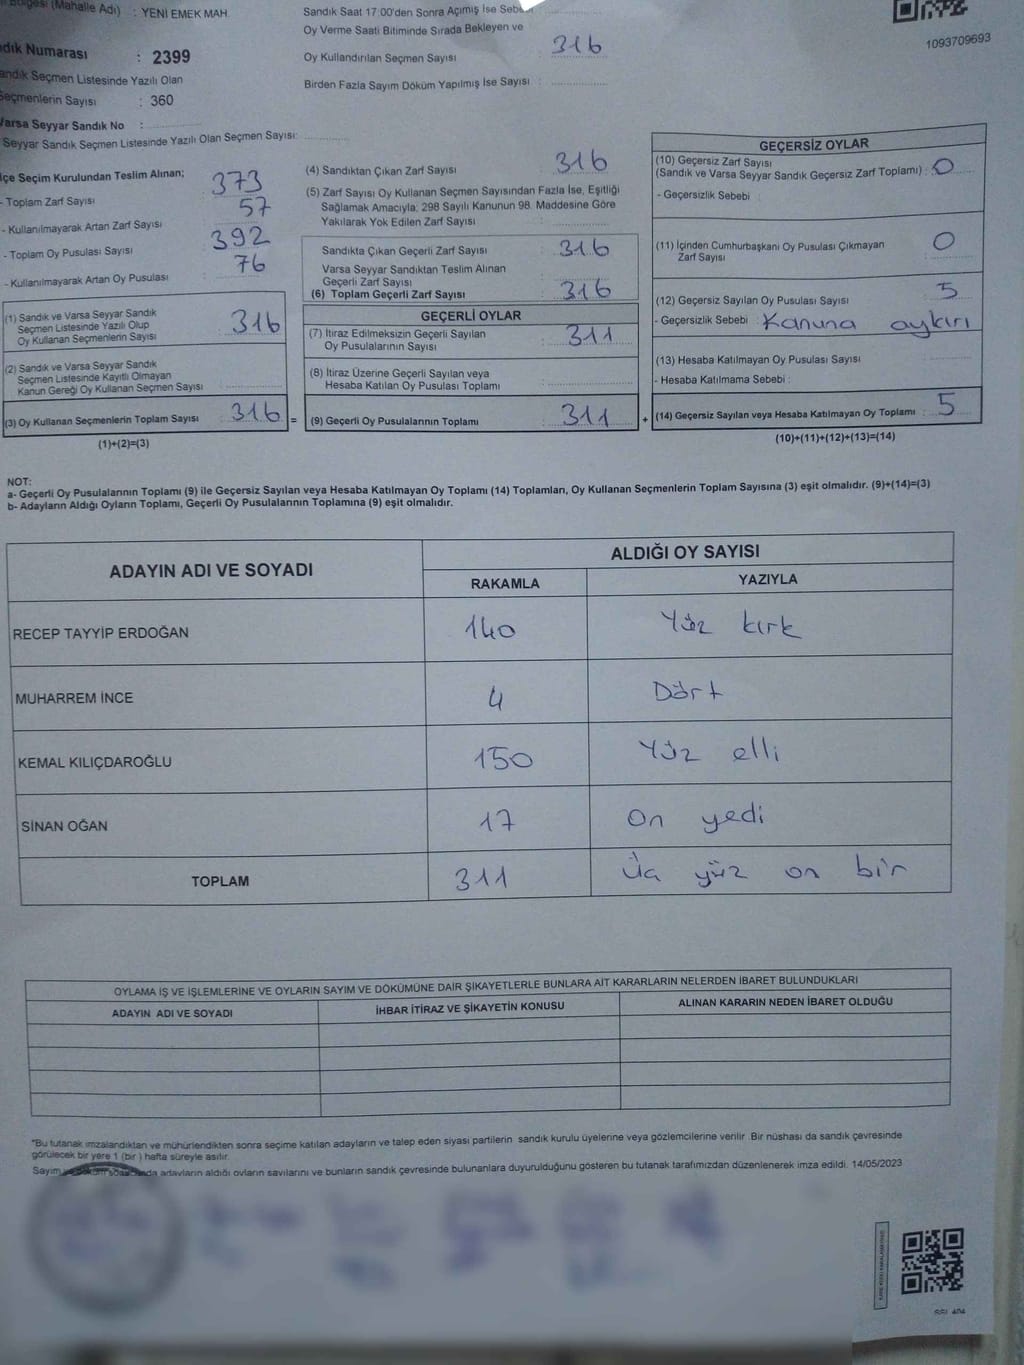 Bölgesi (Mahalle Adı) : YENİ EMEK MAH.
Sandık Saat 17:00'den Sonra Açımış İse
Oy Verme Saati Bitiminde Sırada Bekleyen ve
Oy Kullandırılan Seçmen Sayısı : 316
Birden Fazla Sayım Döküm Yapılmış İse Sayısı :
1093709693
dık Numarası : 2399
andık Seçmen Listesinde Yazılı Olan
Seçmenlerin Sayısı : 360
Varsa Seyyar Sandık No :
Seyyar Sandık Seçmen Listesinde Yazılı Olan Seçmen Sayısı:
lçe Seçim Kurulundan Teslim Alınan;
- Toplam Zarf Sayısı : 373
- Kullanılmayarak Artan Zarf Sayısı : 57
- Toplam Oy Pusulası Sayısı : 392
- Kullanılmayarak Artan Oy Pusulası : 76
(1) Sandık ve Varsa Seyyar Sandık
Seçmen Listesinde Yazılı Olup
Oy Kullanan Seçmenlerin Sayısı : 316
(2) Sandık ve Varsa Seyyar Sandık
Seçmen Listesinde Kayıtlı Olmayan
Kanun Gereği Oy Kullanan Seçmen Sayısı :
(3) Oy Kullanan Seçmenlerin Toplam Sayısı : 316 =
(1)+(2)=(3)
(4) Sandıktan Çıkan Zarf Sayısı : 316
(5) Zarf Sayısı Oy Kullanan Seçmen Sayısından Fazla İse, Eşitliği
Sağlamak Amacıyla; 298 Sayılı Kanunun 98. Maddesine Göre
Yakılarak Yok Edilen Zarf Sayısı :
Sandıkta Çıkan Geçerli Zarf Sayısı : 316
Varsa Seyyar Sandıktan Teslim Alınan
Geçerli Zarf Sayısı :
(6) Toplam Geçerli Zarf Sayısı : 316
GEÇERLİ OYLAR
(7) İtiraz Edilmeksizin Geçerli Sayılan
Oy Pusulalarının Sayısı : 311
(8) İtiraz Üzerine Geçerli Sayılan veya
Hesaba Katılan Oy Pusulası Toplamı :
(9) Geçerli Oy Pusulalarının Toplamı : 311 +
GEÇERSİZ OYLAR
(10) Geçersiz Zarf Sayısı
(Sandık ve Varsa Seyyar Sandık Geçersiz Zarf Toplamı) : 0
- Geçersizlik Sebebi :
(11) İçinden Cumhurbaşkanı Oy Pusulası Çıkmayan
Zarf Sayısı : 0
(12) Geçersiz Sayılan Oy Pusulası Sayısı : 5
- Geçersizlik Sebebi : Kanuna aykırı
(13) Hesaba Katılmayan Oy Pusulası Sayısı :
- Hesaba Katılmama Sebebi :
(14) Geçersiz Sayılan veya Hesaba Katılmayan Oy Toplamı : 5
(10)+(11)+(12)+(13)=(14)
NOT:
a- Geçerli Oy Pusulalarının Toplamı (9) ile Geçersiz Sayılan veya Hesaba Katılmayan Oy Toplamı (14) Toplamları, Oy Kullanan Seçmenlerin Toplam Sayısına (3) eşit olmalıdır. (9)+(14)=(3)
b- Adayların Aldığı Oyların Toplamı, Geçerli Oy Pusulalarının Toplamına (9) eşit olmalıdır.
ADAYIN ADI VE SOYADI
ALDIĞI OY SAYISI
RAKAMLA YAZIYLA
RECEP TAYYİP ERDOĞAN 140 Yüz kırk
MUHARREM İNCE 4 Dört
KEMAL KILIÇDAROĞLU 150 Yüz elli
SİNAN OĞAN 17 On yedi
TOPLAM 311 Üç yüz on bir
OYLAMA İŞ VE İŞLEMLERİNE VE OYLARIN SAYIM VE DÖKÜMÜNE DAİR ŞİKAYETLERLE BUNLARA AİT KARARLARIN NELERDEN İBARET BULUNDUKLARI
ADAYIN ADI VE SOYADI İHBAR İTİRAZ VE ŞİKAYETİN KONUSU ALINAN KARARIN NEDEN İBARET OLDUĞU
*Bu tutanak imzalandıktan ve mühürlendikten sonra seçime katılan adayların ve talep eden siyasi partilerin sandık kurulu üyelerine veya gözlemcilerine verilir. Bir nüshası da sandık çevresinde
görülecek bir yere 1 (bir ) hafta süreyle asılır.
Sayım adayların aldığı oyların sayılarını ve bunların sandık çevresinde bulunanlara duyurulduğunu gösteren bu tutanak tarafımızdan düzenlenerek imza edildi. 14/05/2023